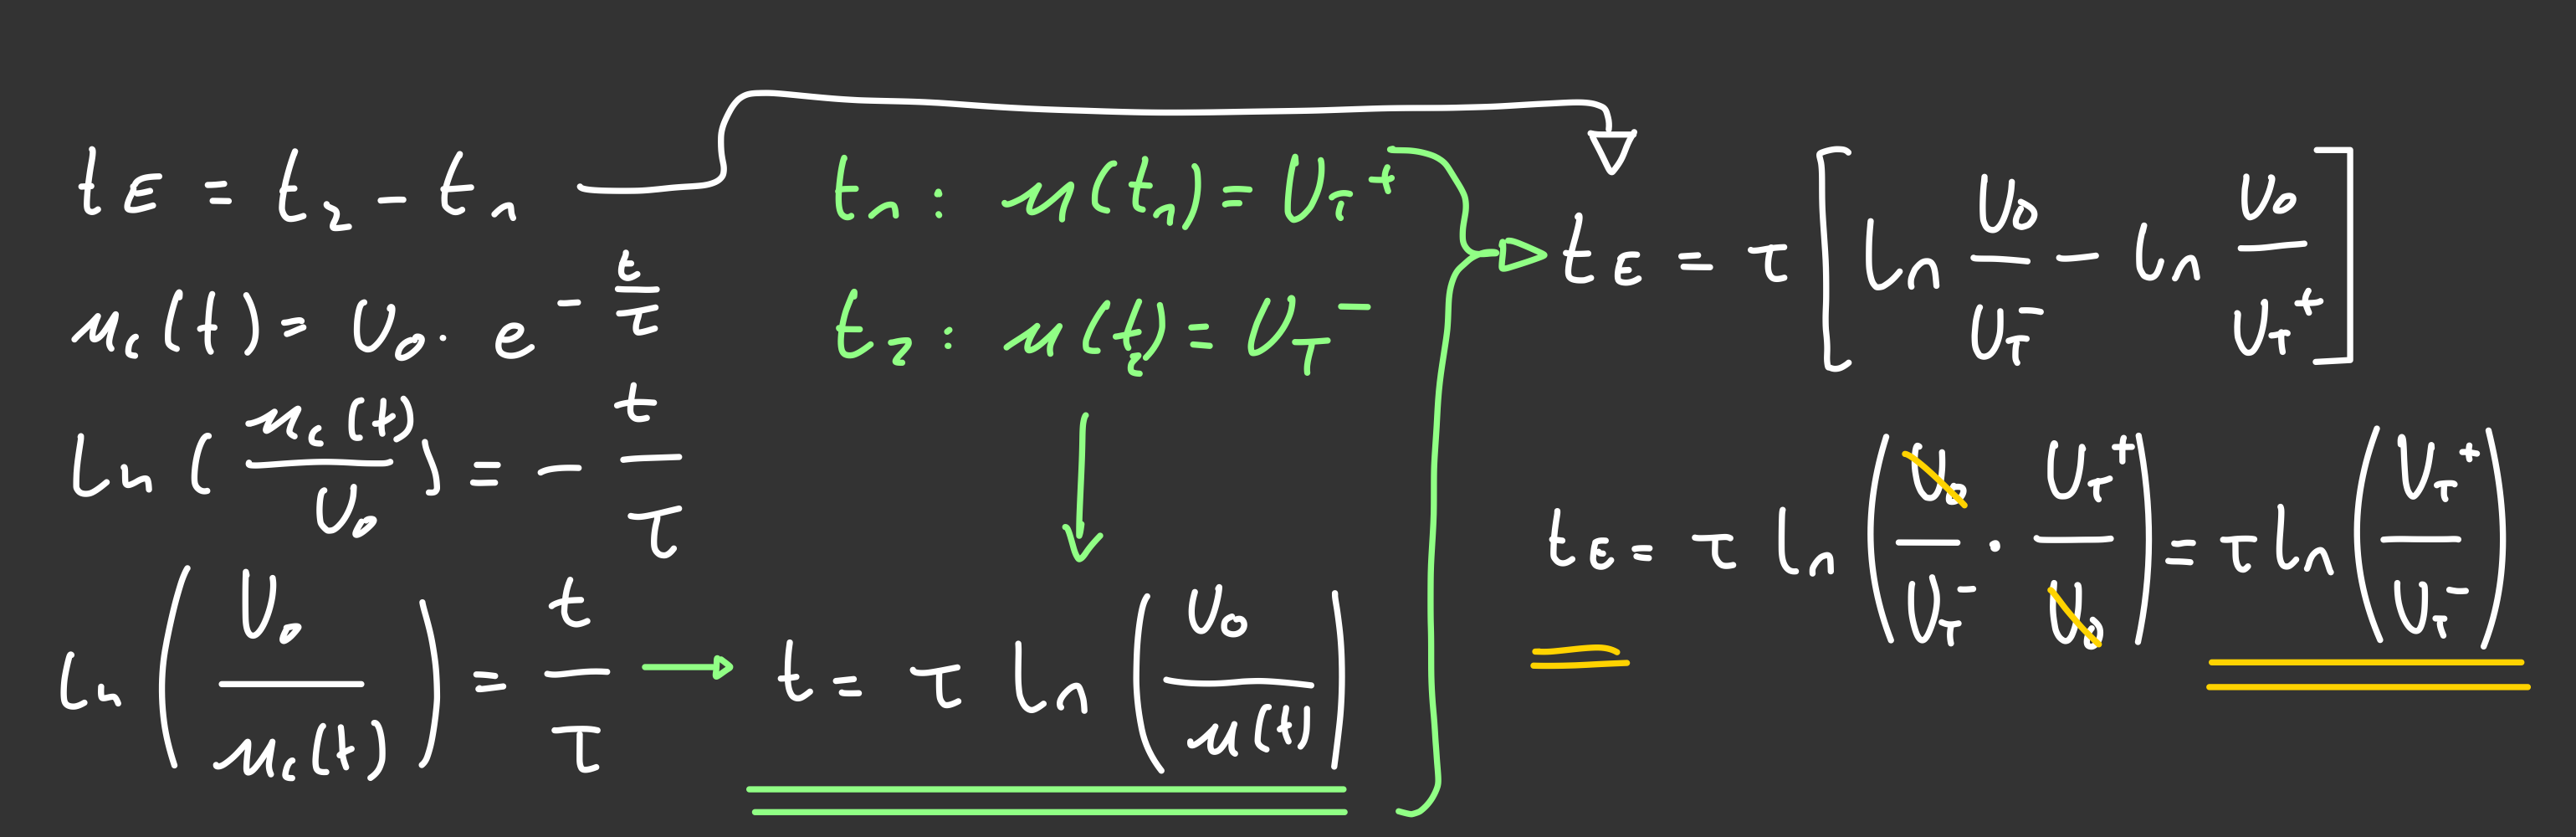 t_E = t_2 - t_1
u_c(t) = U_0 · e^{-t/τ}
ln(u_c(t)/U_0) = - t/τ
ln(U_0/u_c(t)) = t/τ → t = τ ln(U_0/u(t))
t_1: u(t_1) = U_T^+
t_2: u(t_2) = U_T^-
t_E = τ [ln U_0/U_T^- - ln U_0/U_T^+]
t_E = τ ln(U_0/U_T^- · U_T^+/U_0) = τ ln(U_T^+/U_T^-)